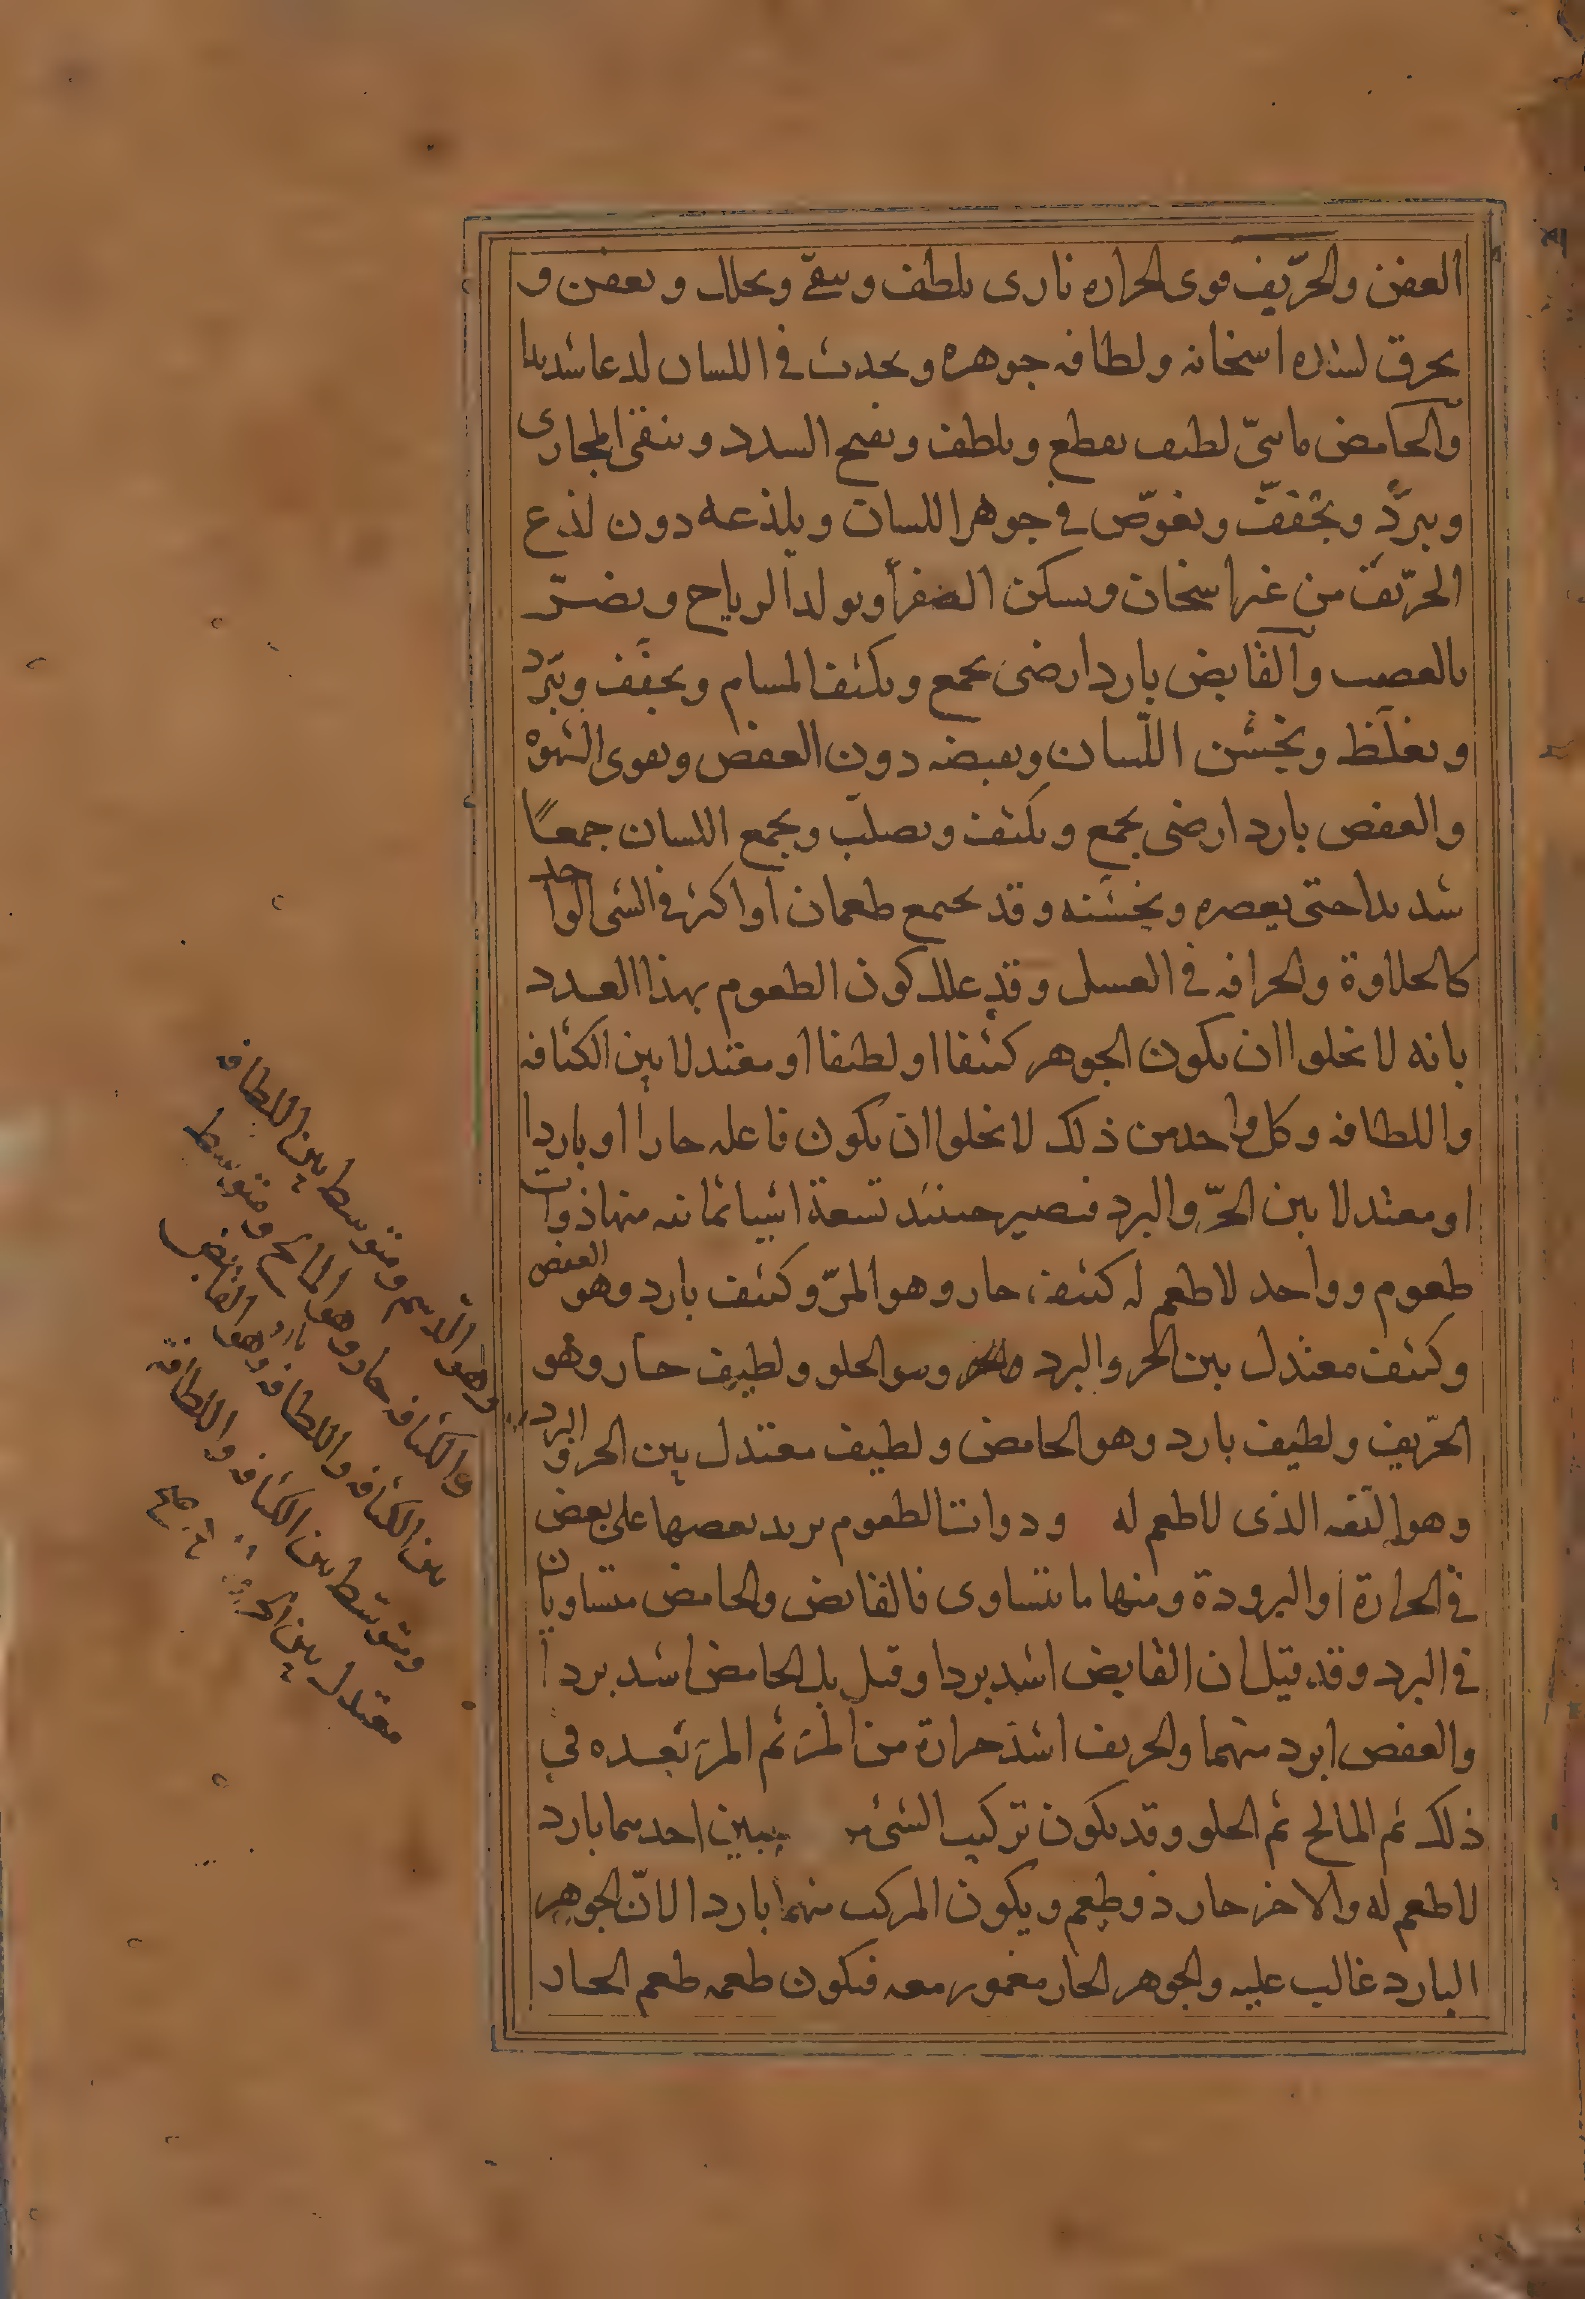 العفن والحرّيف قوى الحراره نارى يلطف وينقى ويحلل ويعفن و
يحرق لشده اسخانه ولطافه جوهره ويحدث فى اللسان لدعا شديدا
والحامض مائىّ لطيف يقطع ويلطف ويفتح السدد وينقى المجارى
ويبرّد ويجفف ويغوّص فى جوهر اللسان ويلذعه دون لذع
الحرّيف من غير اسخان ويسكن الصفرا ويولد الرياح ويضرّ
بالعصب والقابض بارد ارضى يجمع ويكثف المسام ويجفّف ويبرّد
ويغلّظ ويخشّن اللّسان ويقبضه دون العفص ويقوى الشهوة
والعفص بارد ارضى يجمع ويكثف ويصلّب ويجمع اللسان جمعًا
شديدا حتى يعصره ويخشّنه وقد يجتمع طعمان او اكثر فى الشى الواحد
كالحلاوة والحرافه فى العسل وقد علل كون الطعوم بهذا العدد
بانه لا يخلوا ان يكون الجوهر كثيفا او لطيفا او معتدلا بين الكثافه
واللطافه وكل واحد من ذلك لا يخلوا ان يكون فاعله حارا او باردا
او معتدلا بين الحرّ والبرد فيصير حينئذ تسعة اشيا ثمانيه منها ذوات
طعوم وواحد لا طعم له كثيف حار وهو المرّ وكثيف بارد وهو العفص
وكثيف معتدل بين الحر والبرد وهو الحلو ولطيف حار وهو
الحرّيف ولطيف بارد وهو الحامض ولطيف معتدل بين الحر والبرد
وهو التفه الذى لا طعم له وذوات الطعوم يزيد بعضها على بعض
فى الحرارة او البرودة ومنها ما يتساوى فالقابض والحامض متساويان
فى البرد وقد قيل ان القابض اشد بردا وقيل بل الحامض اشد بردا
والعفص ابرد منهما والحريف اشدّ حرارة من المرّ ثم المرّ بعده فى
ذلك ثم المالح ثم الحلو وقد يكون تركيب الشىء احدهما بارد
لا طعم له والاخر حار ذو طعم ويكون المركب منهما باردا لانّ الجوهر
البارد غالب عليه والجوهر الحار مغمور معه فيكون طعمه طعم الحار
وهو الدسم ومتوسط بين اللطافه
والكثافه حار وهو المالح ومتوسط
بين الكثافه واللطافه بارد وهو القابض
ومتوسّط بين الكثافه واللطافة
معتدل بين الحر